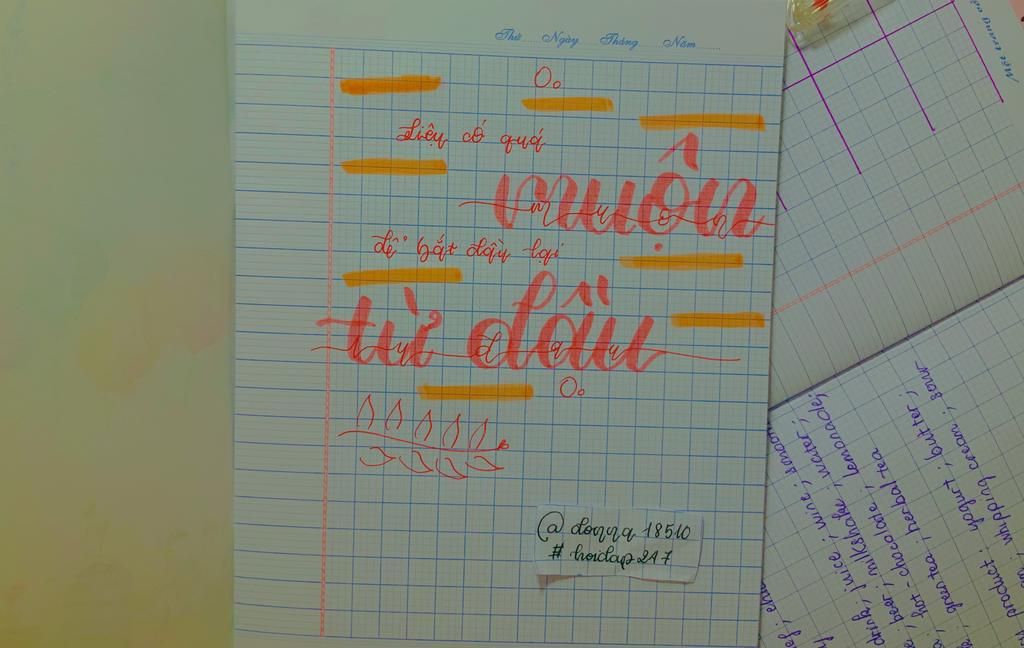 Thứ Ngày Tháng Năm
Liệu có quá
muộn
muộn
để bắt đầu lại
từ đầu
từ đầu
@donna18510
#hoidap247
drink, juice, wine, smoo
beer, milkshake, water,
hot-chocolate, lemonade
green tea, herbal tea
product: yogurt, butter,
whipping cream,